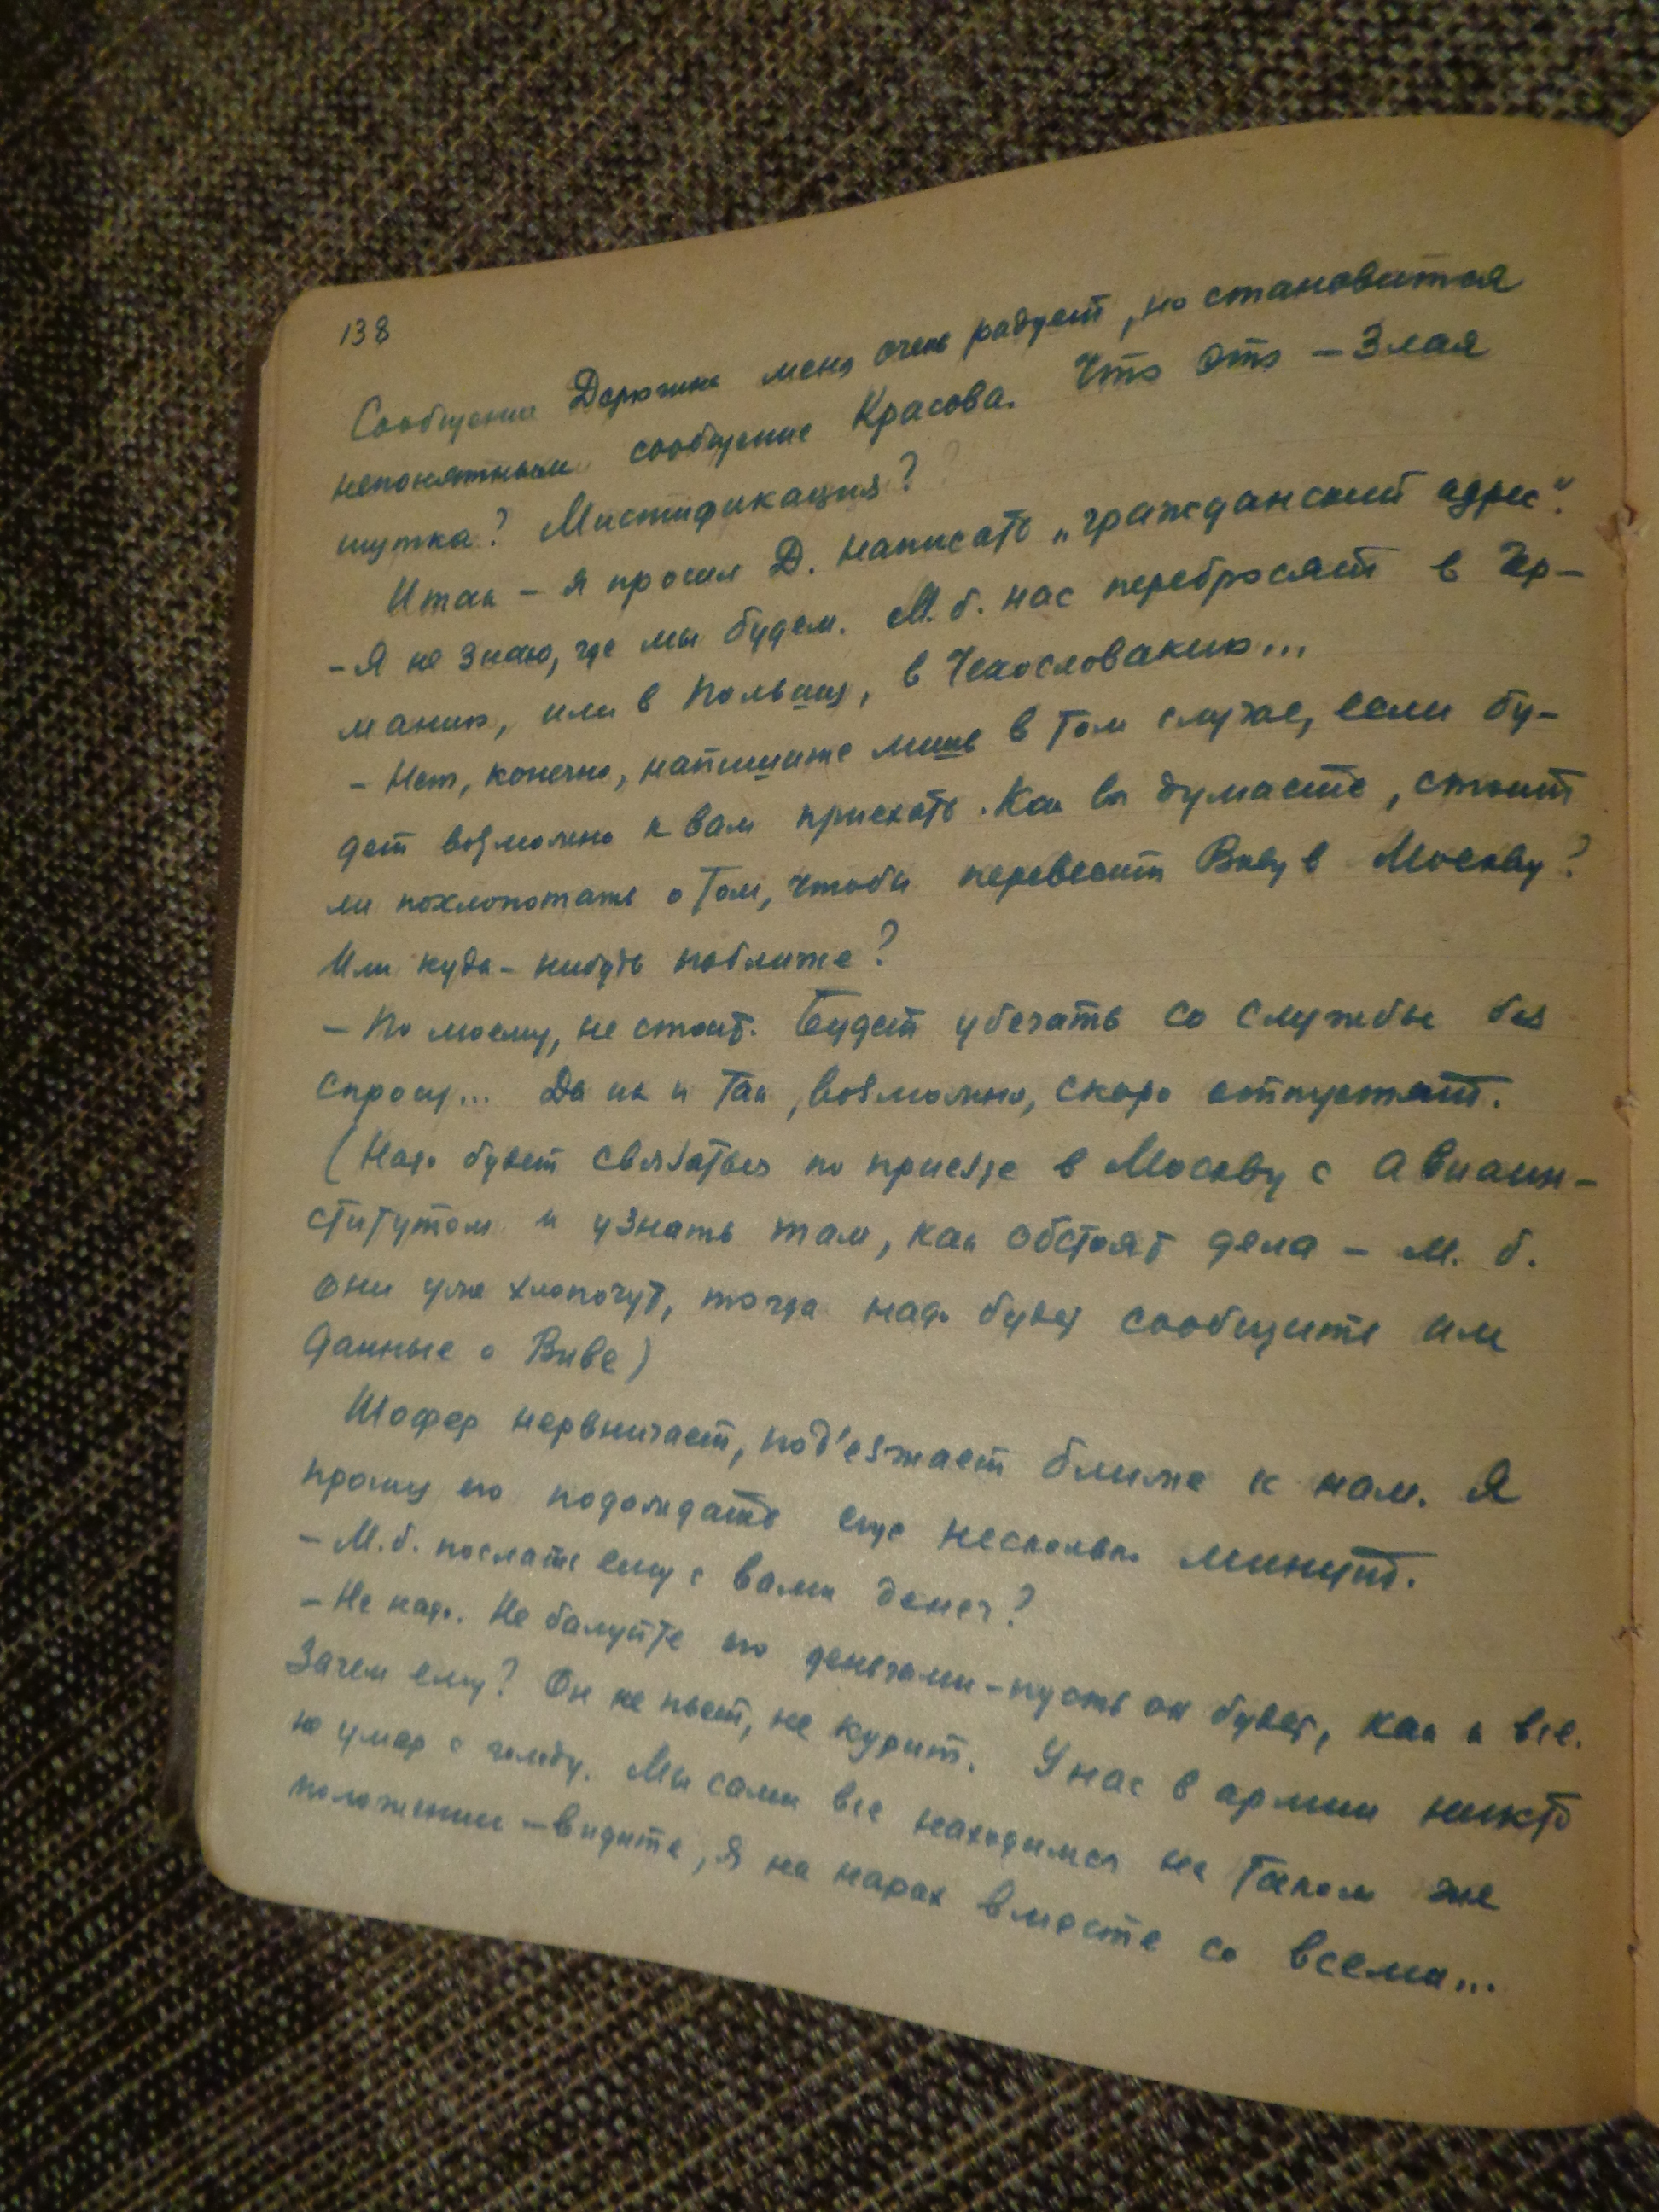 138
Сообщение Дерюгина меня очень радует, но становится
непонятным сообщение Красова. Что это – Злая
шутка? Мистификация?
Итак – я просил Д. написать „гражданский адрес".
– Я не знаю, где мы будем. М. б. нас перебросят в Гер-
манию, или в Польшу, в Чехословакию...
– Нет, конечно, напишите лишь в том случае, если бу-
дет возможно к вам приехать. Как вы думаете, стоит
ли похлопотать о том, чтобы перевести Виву в Москву?
Или куда-нибудь поближе?
– По моему, не стоит. Будет убегать со службы без
спросу... Да их и так, возможно, скоро отпустят.
(Надо будет связаться по приезде в Москву с Авиаин-
ститутом и узнать там, как обстоят дела – м. б.
они уже хлопочут, тогда надо будет сообщить им
данные о Виве)
Шофер нервничает, под'езжает ближе к нам. Я
прошу его подождать еще несколько минут.
– М. б. послать ему с вами денег?
– Не надо. Не балуйте его деньгами – пусть он будет, как и все.
Зачем ему? Он не пьет, не курит. У нас в армии никто
не умер с голоду. Мы сами все находимся на таком же
положении – видите, я на нарах вместе со всеми...